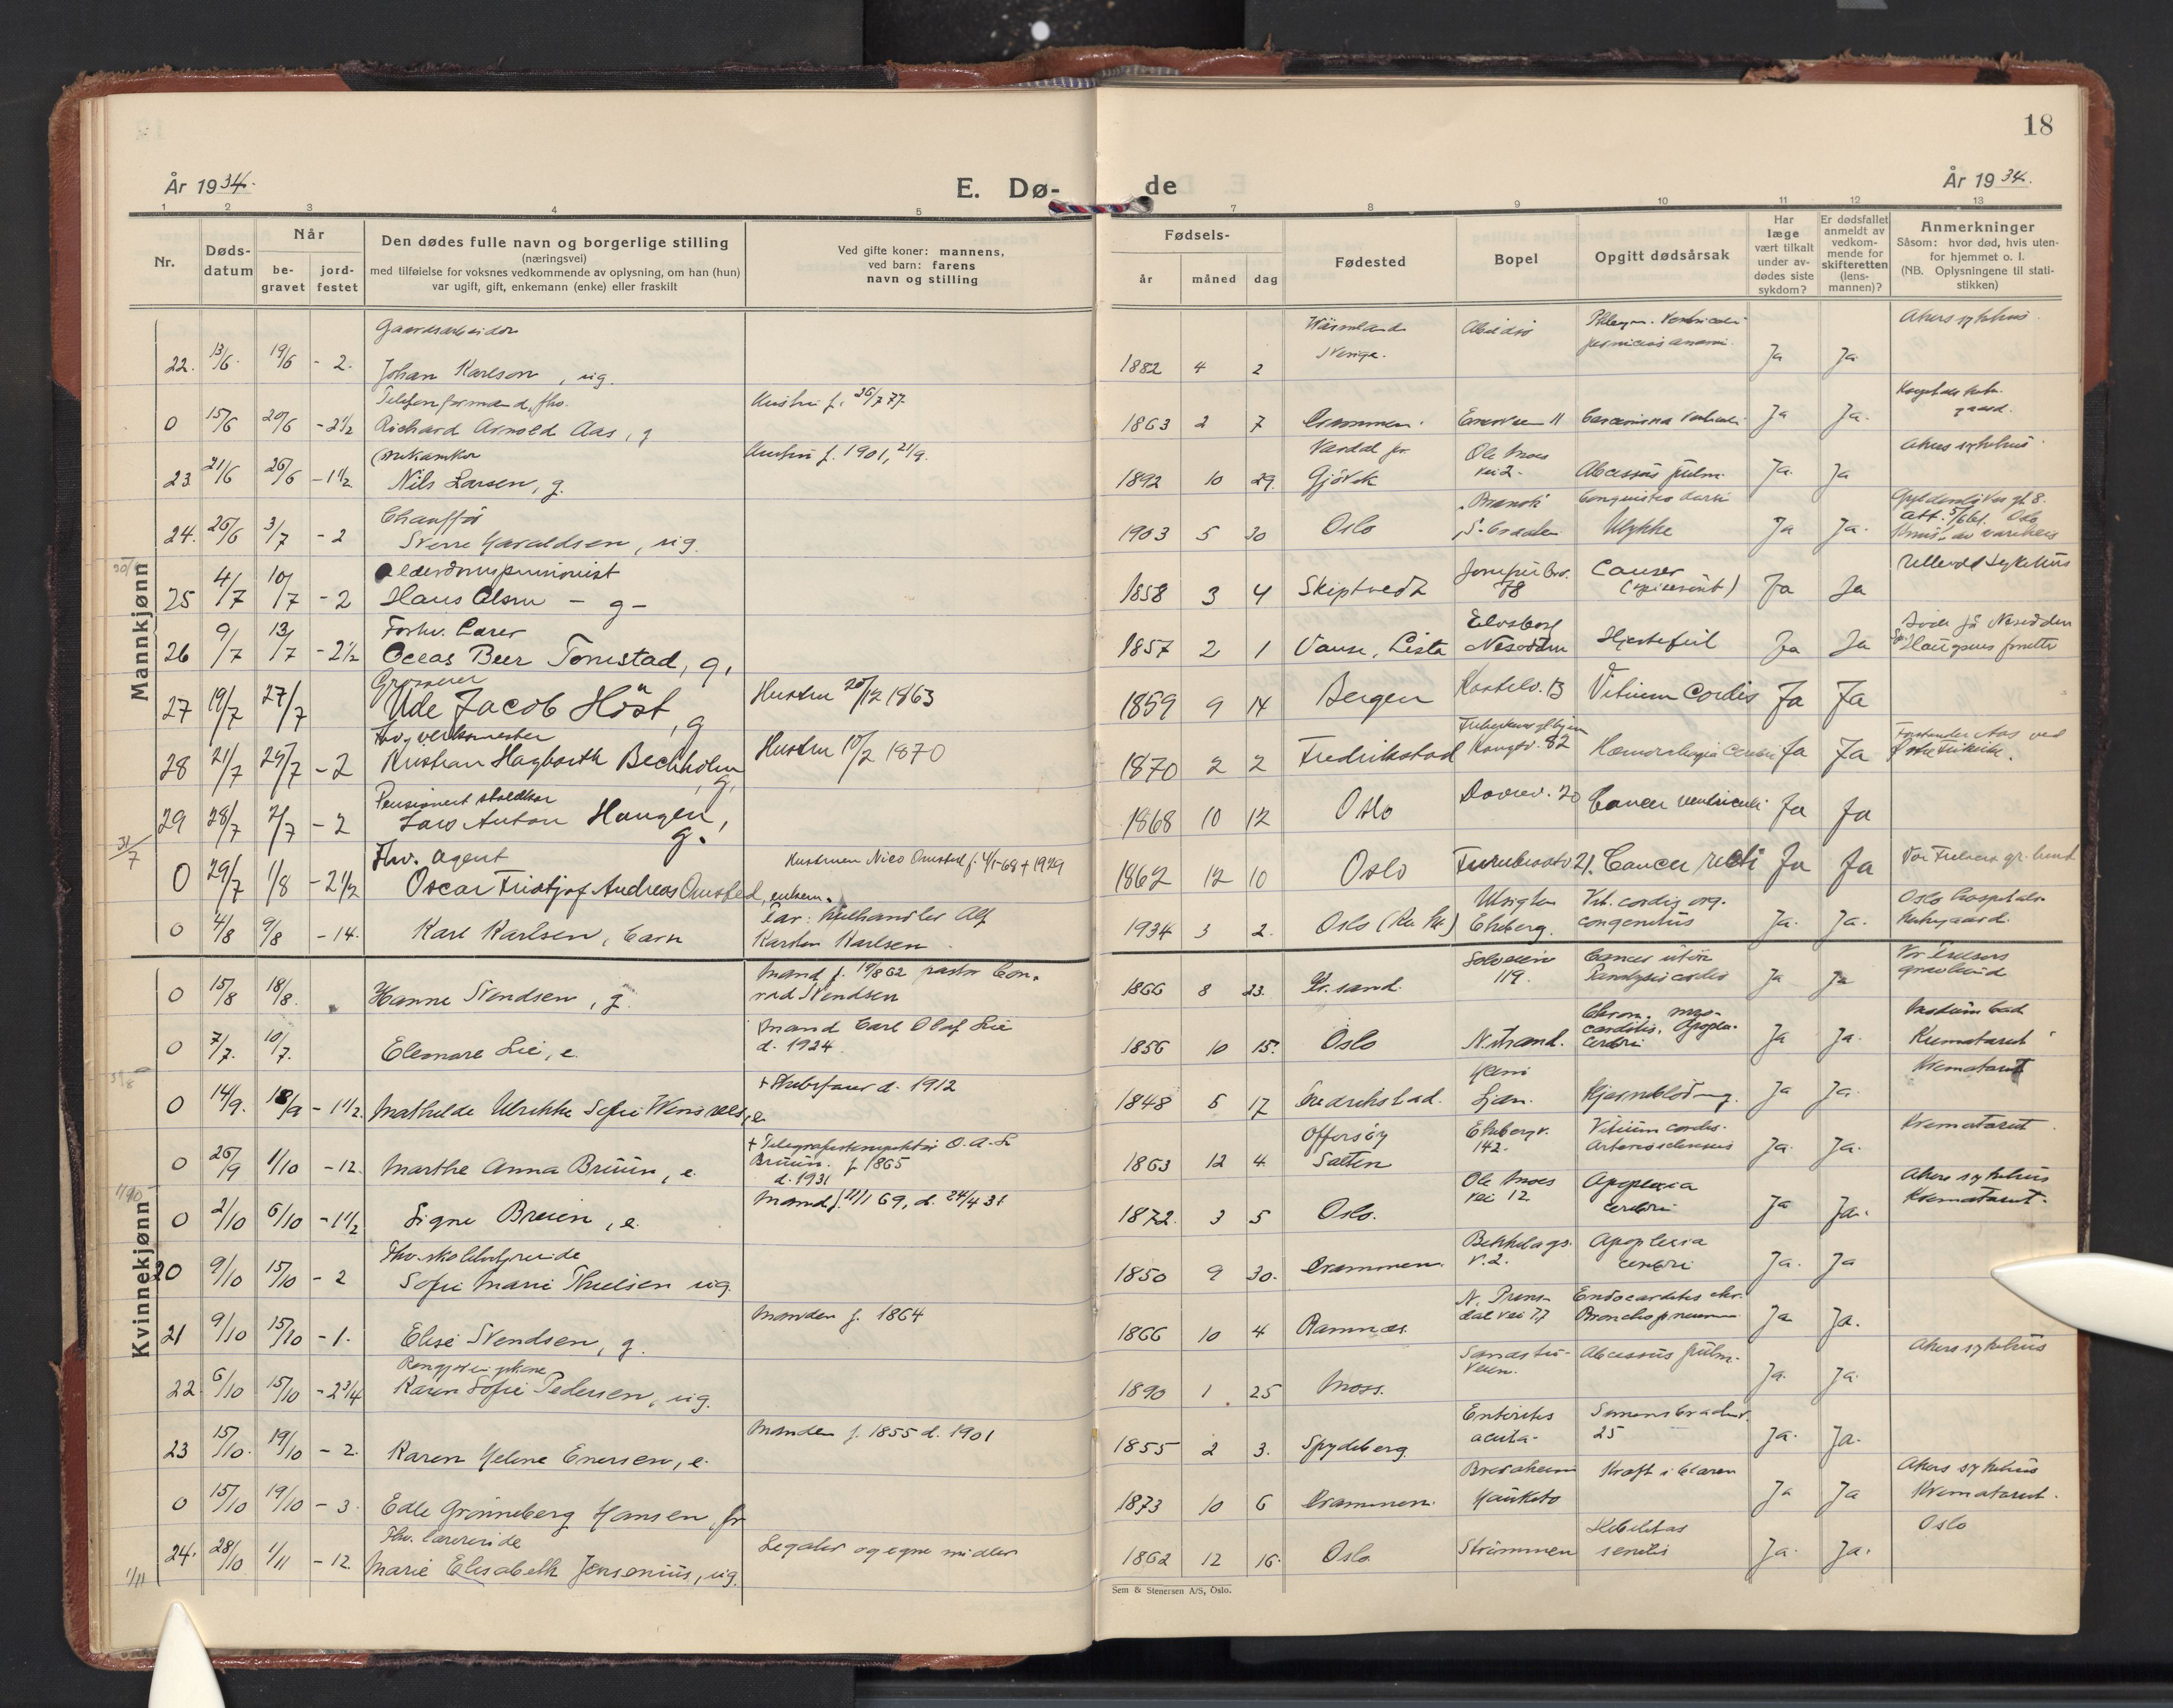 18
År 1934.
E. Dø-
de
År 1934.
1 2 3 4 5 7 8 9 10 11 12 13
Nr.
Døds-
datum
Når
be-
gravet
jord-
festet
Den dødes fulle navn og borgerlige stilling
(næringsvei)
med tilføielse for voksnes vedkommende av oplysning, om han (hun)
var ugift, gift, enkemann (enke) eller fraskilt
Ved gifte koner: mannens,
ved barn: farens
navn og stilling
Fødsels-
år måned dag
Fødested
Bopel
Opgitt dødsårsak
Har
læge
vært tilkalt
under av-
dødes siste
sykdom?
Er dødsfallet
anmeldt av
vedkom-
mende for
skifteretten
(lens-
mannen)?
Anmerkninger
Såsom: hvor død, hvis uten-
for hjemmet o. l.
(NB. Oplysningene til stati-
stikken)
Mannkjønn
Gaardsarbeider
22. 13/6. 19/6 - 2. Johan Karlson, ug. 1882 4 2 Wärmland Sverige. Ja Ja Akers sykehus
Telefonformand, fhv.
0 15/6 20/6 - 2 1/2 Richard Arnold Aas, g Hustru f. 26/7 77. 1863 2 7 Drammen. Ja Ja.
Mekaniker
23 21/6 26/6 - 1 1/2 Nils Larsen, g. Hustru f. 1901, 21/9. 1892 10 29. Gjövik Ole Moes vei 2. Abcessus pulm. Ja. Ja Akers sykehus
Chauffør
24. 26/6 3/7 - 2 Sverre Haraldsen, ug. 1903 5 30 Oslo Ulykke Ja Ja.
Alderdomspensionist
25 4/7 10/7 - 2 Hans Olsen - g - 1858 3 4 Skiptvedt 78 Cancer Ja Ja Ullevål Sykehus
Forhv. Lærer
26 9/7 13/7 - 2 1/2 Oceas Beer Tomstad, g, 1857 2 1 Vanse, Lista Nesodden Hjertefeil Ja Ja
Grosserer
27 19/7 27/7 Ude Jacob Höst, g Hustru 20/12 1863 1859 9 14 Bergen 13 Vitium Cordis Ja Ja
28 21/7 25/7 - 2 Kristian Hagbarth Bechholm, g, Hustru 10/2 1870 1870 2 2 Fredrikstad Kongsv. 82 Hæmorrhagia Cerebri Ja Ja
Pensionert
29 28/7 2/7 - 2 Lars Anton Haugen, g. 1868 10 12 Oslo Dovrev. 20 Cancer ventriculi Ja Ja
31/7
Fhv. Agent
0 29/7 1/8 - 2 1/2 Oscar Fridtjof Andreas Omsted, enkem. 1862 12 10 Oslo 21. Cancer recti Ja Ja
0 4/8 9/8 - 14. Karl Karlsen, barn Far: Alf Karsten Karlsen. 1934 3 2. Oslo Ekeberg. Vit. cordis org. congenitus Ja. Ja. Oslo hospitals
Kvinnekjønn
0 15/8 18/8. Hanne Svendsen, g. Mand f. 19/8 62 pastor Con-
rad Svendsen 1866 8 23. Kr. sand. Solveien 119. Paralysis cordis Ja Ja Vor Frelsers gravlund
0 7/7. 10/7. Eleonore Lie, e. Mand Carl Olaf Lie
d. 1924. 1856 10 15. Oslo N.strand. Ja Ja.
0 14/9. 18/9 - 1 1/2. Mathilde Ulrikke Sofie e. d. 1912 1848 5 17 Fredrikstad. Ljan. Hjerneblödning. Ja Ja. Krematoriet
0 26/9 1/10 - 12. Marthe Anna Bruun, e. + O. A. S.
Bruun. f. 1865
d. 1931 1863 12 4. Offersöy Salten Ekebergv. 142. Vitium cordis. Ja. Ja. Krematoriet
0 2/10 6/10 - 1 1/2 Signe Breien, e. Mand f. 21/1 69, d. 24/4 31 1872. 3 5 Oslo. Ole Moes vei 12 Apoplexia cerebri Ja Ja. Akers sykehus Krematoriet.
Fhv. skolebestyrerinde
20 9/10 15/10 - 2 Sofie Marie Thielsen ug. 1850 9 30. Drammen. Bekkelags. v. 2. Apoplexia cerebri Ja. Ja
21 9/10 15/10 - 1. Elise Svendsen, g. Manden f. 1864 1866 10 4 Ramnæs. Endocarditis chr. Ja Ja.
22. 6/10 15/10 - 2 3/4 Karen Sofie Pedersen, ug. 1890 1 25 Moss. Abcessus pulm. Ja. Ja. Akers sykehus
23 15/10. 19/10 - 2. Karen Helene Enersen, e. Manden f. 1855 d. 1901 1855 2 3. Spydeberg. Enteritis acuta. 25 Ja. Ja.
0 15/10 19/10 - 3. Edle Grönneberg Hansen, fr 1873 10 6 Drammen. Hauketo Ja Ja Akers sykehus Krematoriet.
Fhv. lærerinde
24. 28/10 1/11 - 12. Marie Elisabeth Jensenius, ug. Legater og egne midler 1862 12 16. Oslo Strömmen Debilitas senilis Ja. Ja. Oslo
1/11
Sem & Stenersen A/S, Oslo.